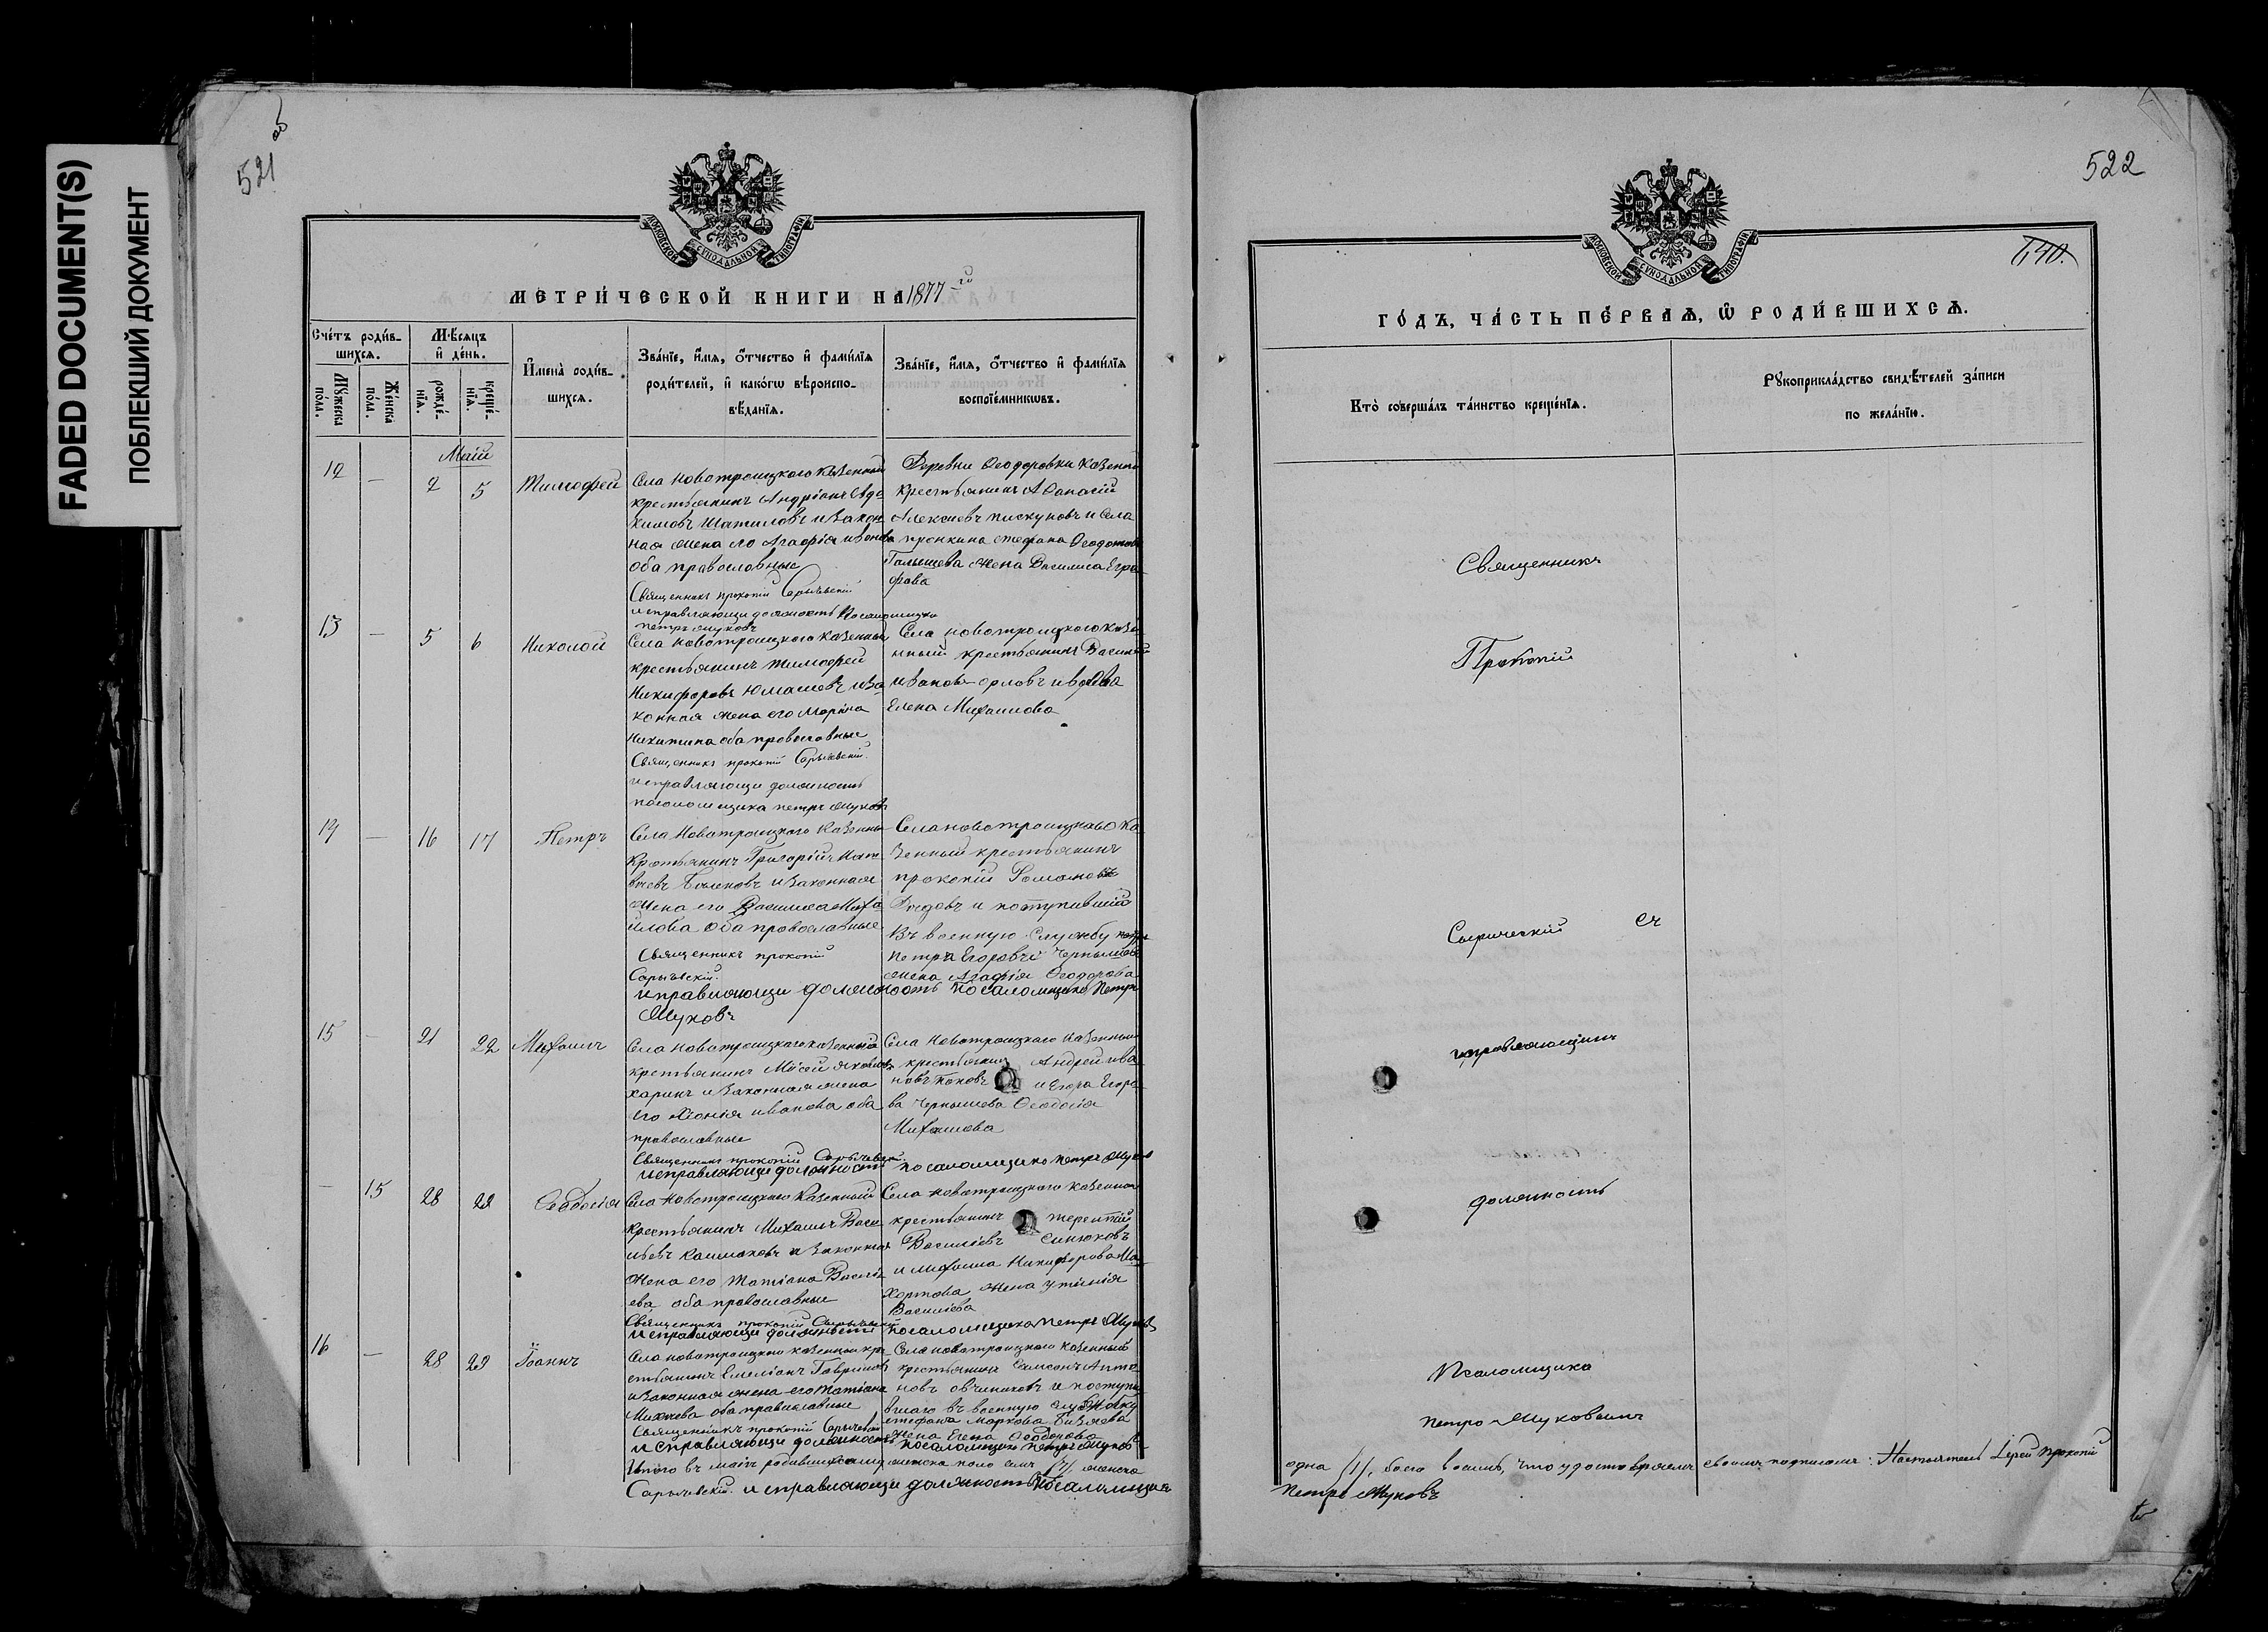 FADED DOCUMENT(S)
ПОБЛЕКШИЙ ДОКУМЕНТ
521 об
МОСКОВСКОЙ СѴНОДАЛЬНОЙ ТИПОГРАФІИ
МЕТРИ́ЧЕСКОЙ КНИГИ НА 1877 го
Сче́тъ роди́в-
шихсѧ.
Мꙋжеска по́ла.
Же́нска по́ла.
Мѣ́сяцъ
и҆ де́нь.
рожде́-
нїѧ.
креще́-
нїѧ.
И҆мена̀ роди́в-
шихсѧ.
Зва́нїе, и҆́мѧ, ѻ҆́тчество и҆ фами́лїѧ
роди́телей, и҆ како́гѡ вѣроиспо-
вѣ́данїѧ.
Зва́нїе, и҆́мѧ, ѻ҆́тчество и҆ фами́лїѧ
воспрїе́мникѡвъ.
Маій
12 — 2 5 Тимофей
Села Новотроицкого казенный
крестьянинъ Андріанъ Евдо
кимовъ Шатиловъ и закон
ная жена его Агафія иванова
оба православные
Священникъ прокопій Сарычевскій
исправляющи должность Посаломщика
петръ жуковъ
Деревни Ѳеодоровки казенны
крестьянинъ Аѳанасій
Алексиевъ пискуновъ и села
пронкина стефана
Голышева жена Василиса Евгра
фова
13 — 5 6 Николай
Села новотроицкого казенный
крестьянинъ тимофей
Никифоровъ Юмашевъ и за
конная жена его Марина
Никитина оба православные
Священникъ прокопій Сарычевскій
исправляющи должность
посаломщика петръ жуковъ
Села новотроицкого казе
нный крестьянинъ Василій
ивановъ орловъ и вдова
Елена Михаилова
14 — 16 17 Петръ
Села Новотроицкого казенны
крстьянинъ Григорій Мат
веевъ и законная
жена его Василиса Миха
илова оба православные
Священникъ прокопій
Сарычевскій
исправляющи должность посаломщика Петръ
Жуковъ
Села новотроицкаго ка
зенный крестьянинъ
прокопій Романовъ
и поступившій
въ военную службу
петра Егоровъ Чернышовъ
жена Агафія Ѳеодорова
15 — 21 22 Михаилъ
Села Новотроицкого казенный
крестьянинъ Мѡсей яковлевъ
харинъ и законная жена
его Хіонія иванова оба
православные
Священникъ прокопій Сарычевск
исправляющи должность посаломщика петръ жуковъ
Села Новотроицкаго казенный
крестьянинъ Андрей ива
новъ поповъ и Егора Егоро
ва Чернышева Ѳеодосія
Михаилова
— 15 28 29 Ѳеодосія
Села Новотроицкого казенный
крестьянинъ Михаилъ Васи
льевъ и законная
жена его Татіана Василі
ева оба православные
Священникъ прокопій Сарычевскій
исправляющи должность посаломщика петръ жуковъ
Села новотроицкого казенной
крестьянинъ терентій
Василіевъ Синюковъ
и михаила Никифорова Ма
хортова жена
Василіева
16 — 28 29 Іоаннъ
Села новотроицкого казенный кре
стьянинъ Емеліанъ Гавриловъ
и законная жена его татіана
Михеева оба православные
Священникъ прокопій Сарычевскій
исправляющи должность посаломщика петръ жуковъ
Села новотроицкаго казенный
крестьянинъ Самсонъ Анто
новъ овчиниковъ и поступи
вшаго въ военную службу
стефана Маркова Бизяева
жена Елена Ѳеодорова
Итого въ маіѣ родившихся мужеска пола семь /7/, женска
Сарычевскій исправляющи должность Посаломщика
522
140.
МОСКОВСКОЙ СѴНОДАЛЬНОЙ ТИПОГРАФІИ
ГО́ДЪ, ЧА́СТЬ ПЕ́РВАѦ, Ѡ҆ РОДИ́ВШИХСѦ.
Кто̀ соверша́лъ та́инство креще́нїѧ.
Рꙋкоприкла́дство свидѣ́телей за́писи
по жела́нїю.
Священникъ
Прокопій
Сырический съ
должность
Псаломщика
петро Жуковымъ
одна /1/, всего восемь, что удостовѣряемъ своимъ подписомъ: Настоятель Іерей Прокопій
Петръ Жуковъ